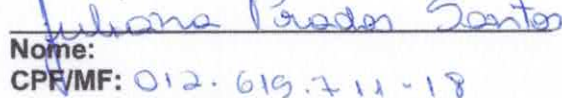 Juliana Prados Santos
Nome:
CPF/MF: 012.619.711-18